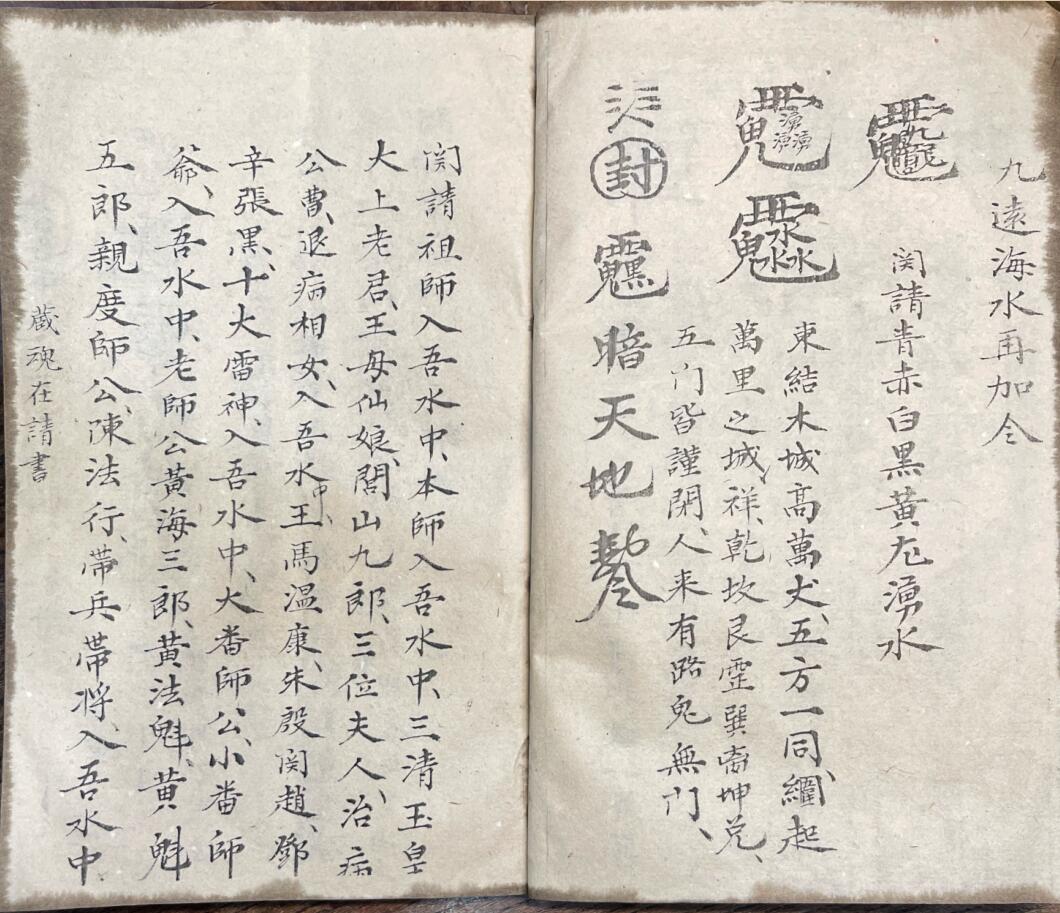 九遠海水再加仝
関請青赤白黑黄尨湧水
東結木城高萬丈、五方一同、綑起
萬里之城、祥、乾坎艮霊巽离坤兑、
五门皆謹閉、人来有路鬼無门、
封
暗天地
関請祖師入吾水中、本師入吾水中、三清玉皇
大上老君、王母仙娘、閭山九郎、三位夫人、治病
公曹、退病相女、入吾水中、王馬温康朱殷関趙、鄧
辛張黑、十大雷神、入吾水中、大番師公、小番師
爺、入吾水中、老師公黄海三郎、黄法魁、黄魁
五郎、親度師公、陳法行、帶兵帶将、入吾水中
蔵魂在請書